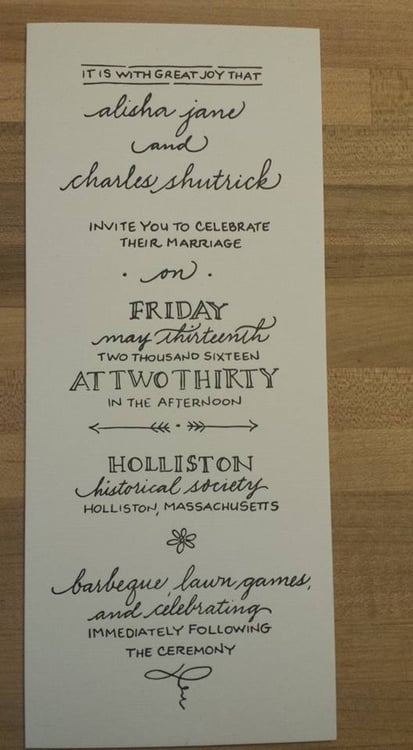 IT IS WITH GREAT JOY THAT
alisha jane
and
charles shutrick
INVITE YOU TO CELEBRATE
THEIR MARRIAGE
· on ·
FRIDAY
may thirteenth
TWO THOUSAND SIXTEEN
AT TWO THIRTY
IN THE AFTERNOON
HOLLISTON
historical society
HOLLISTON, MASSACHUSETTS
barbeque, lawn games,
and celebrating
IMMEDIATELY FOLLOWING
THE CEREMONY